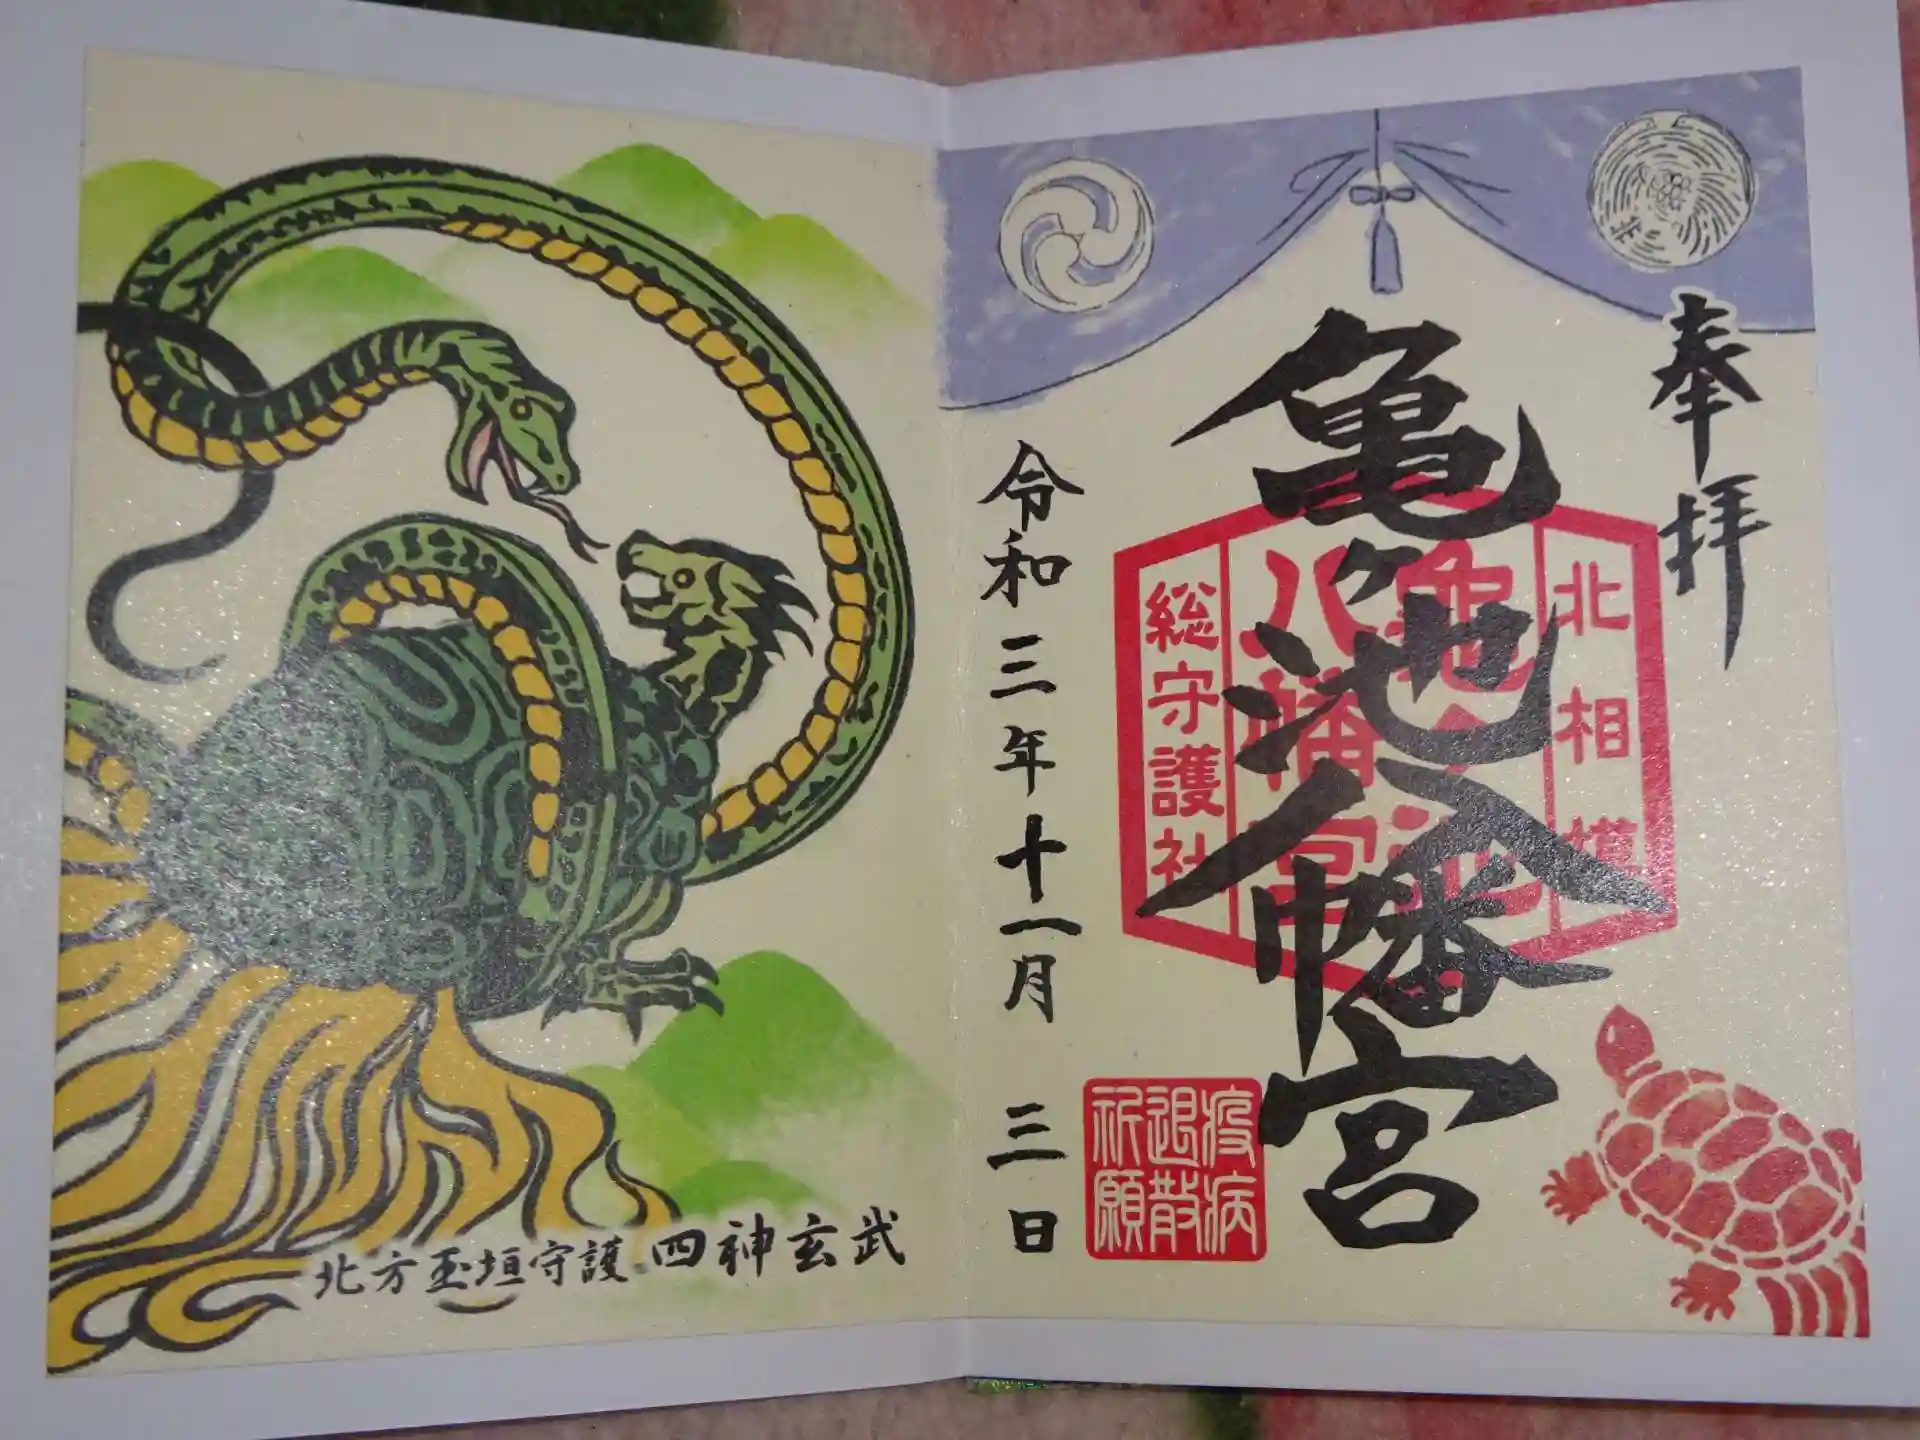 奉拝
亀ヶ池八幡宮
北相模
亀ヶ池
八幡宮
総守護社
疫病
退散
祈願
令和三年十一月三日
北方玉垣守護 四神玄武